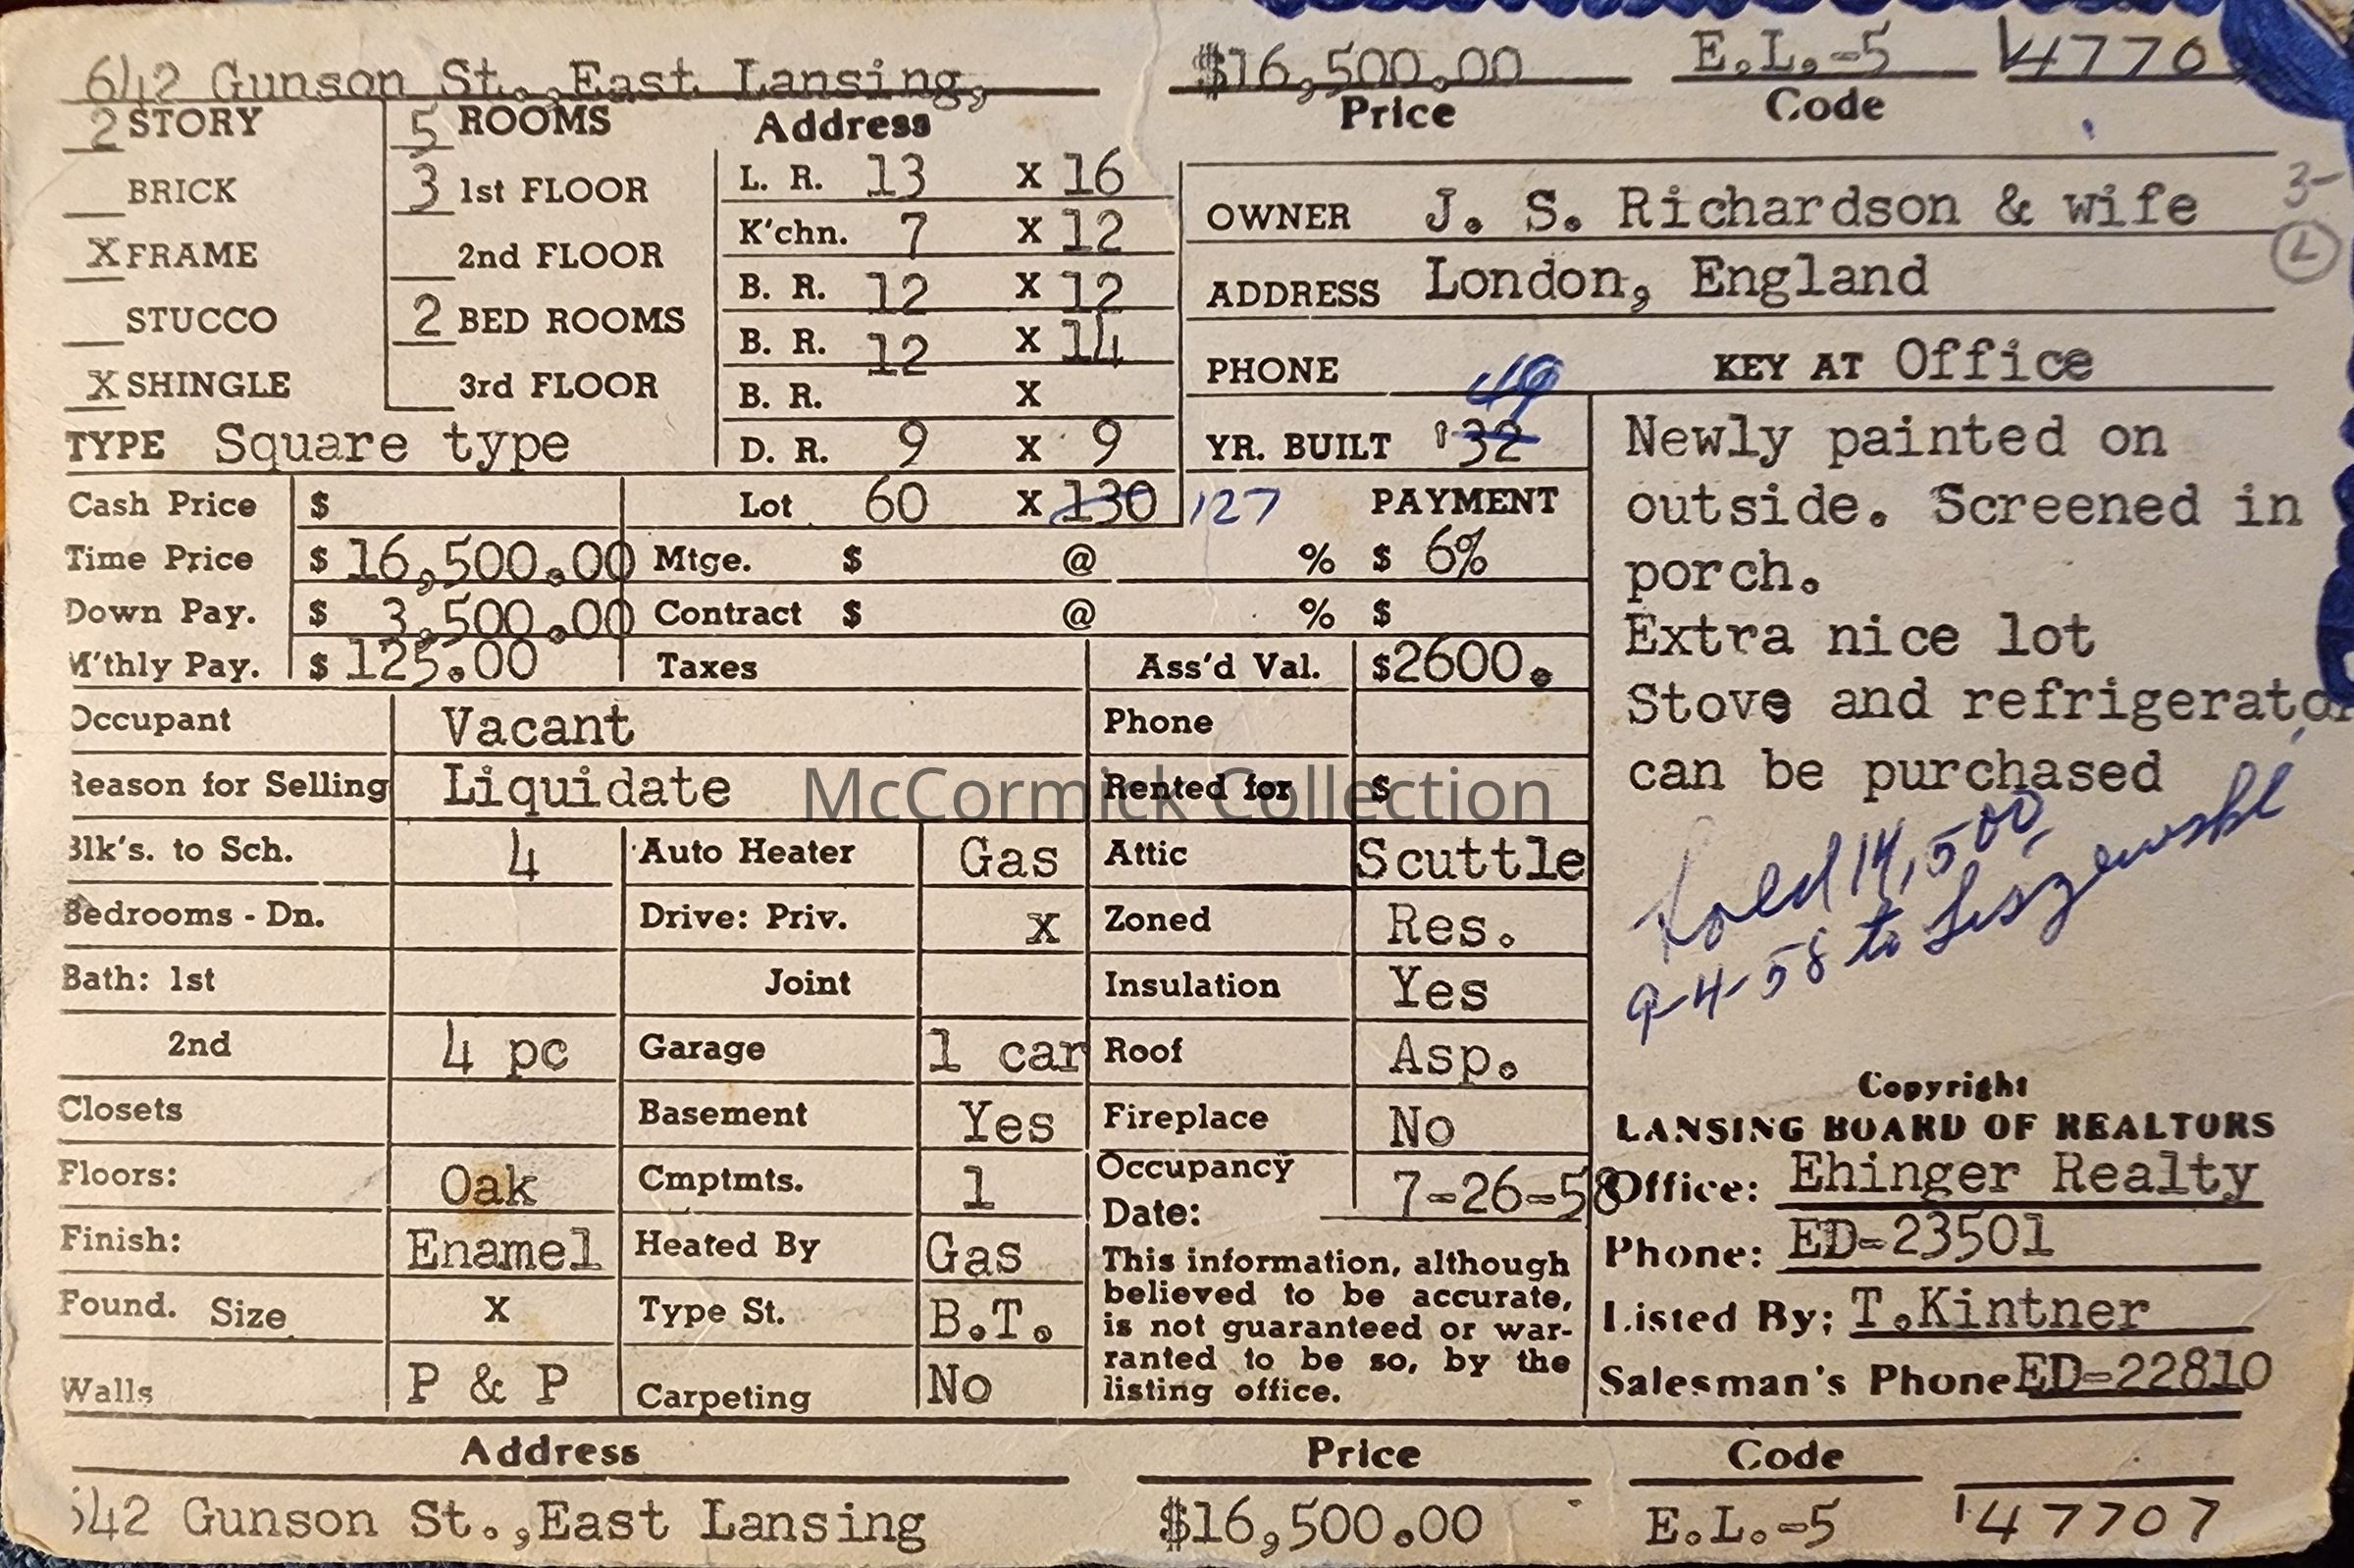 642 Gunson St.,East Lansing, $16,500.00 E.L.-5 4770
Address Price Code
2 STORY 5 ROOMS
BRICK 3 1st FLOOR L. R. 13 X 16
X FRAME 2nd FLOOR K'chn. 7 X 12
STUCCO 2 BED ROOMS B. R. 12 X 12
X SHINGLE 3rd FLOOR B. R. 12 X 14
B. R. X
TYPE Square type D. R. 9 X 9
Lot 60 X 130 127
OWNER J. S. Richardson & wife
3-
L
ADDRESS London, England
PHONE KEY AT Office
49
YR. BUILT '32
Cash Price $
Time Price $ 16,500.00 Mtge. $ @ % $ 6%
PAYMENT
Down Pay. $ 3,500.00 Contract $ @ % $
M'thly Pay. $ 125.00 Taxes Ass'd Val. $2600.
Occupant Vacant Phone
Reason for Selling Liquidate Rented for $
McCormick Collection
Blk's. to Sch. 4 Auto Heater Gas Attic Scuttle
Bedrooms - Dn. Drive: Priv. x Zoned Res.
Bath: 1st Joint Insulation Yes
2nd 4 pc Garage 1 car Roof Asp.
Closets Basement Yes Fireplace No
Floors: Oak Cmptmts. 1 Occupancy Date: 7-26-58
Finish: Enamel Heated By Gas
Found. Size X Type St. B.T.
Walls P & P Carpeting No
This information, although
believed to be accurate,
is not guaranteed or war-
ranted to be so, by the
listing office.
Newly painted on
outside. Screened in
porch.
Extra nice lot
Stove and refrigerator
can be purchased
Sold 14,500
9-4-58 to Liszewski
Copyright
LANSING BOARD OF REALTORS
Office: Ehinger Realty
Phone: ED-23501
Listed By; T.Kintner
Salesman's Phone ED-22810
Address Price Code
642 Gunson St.,East Lansing $16,500.00 E.L.-5 47707